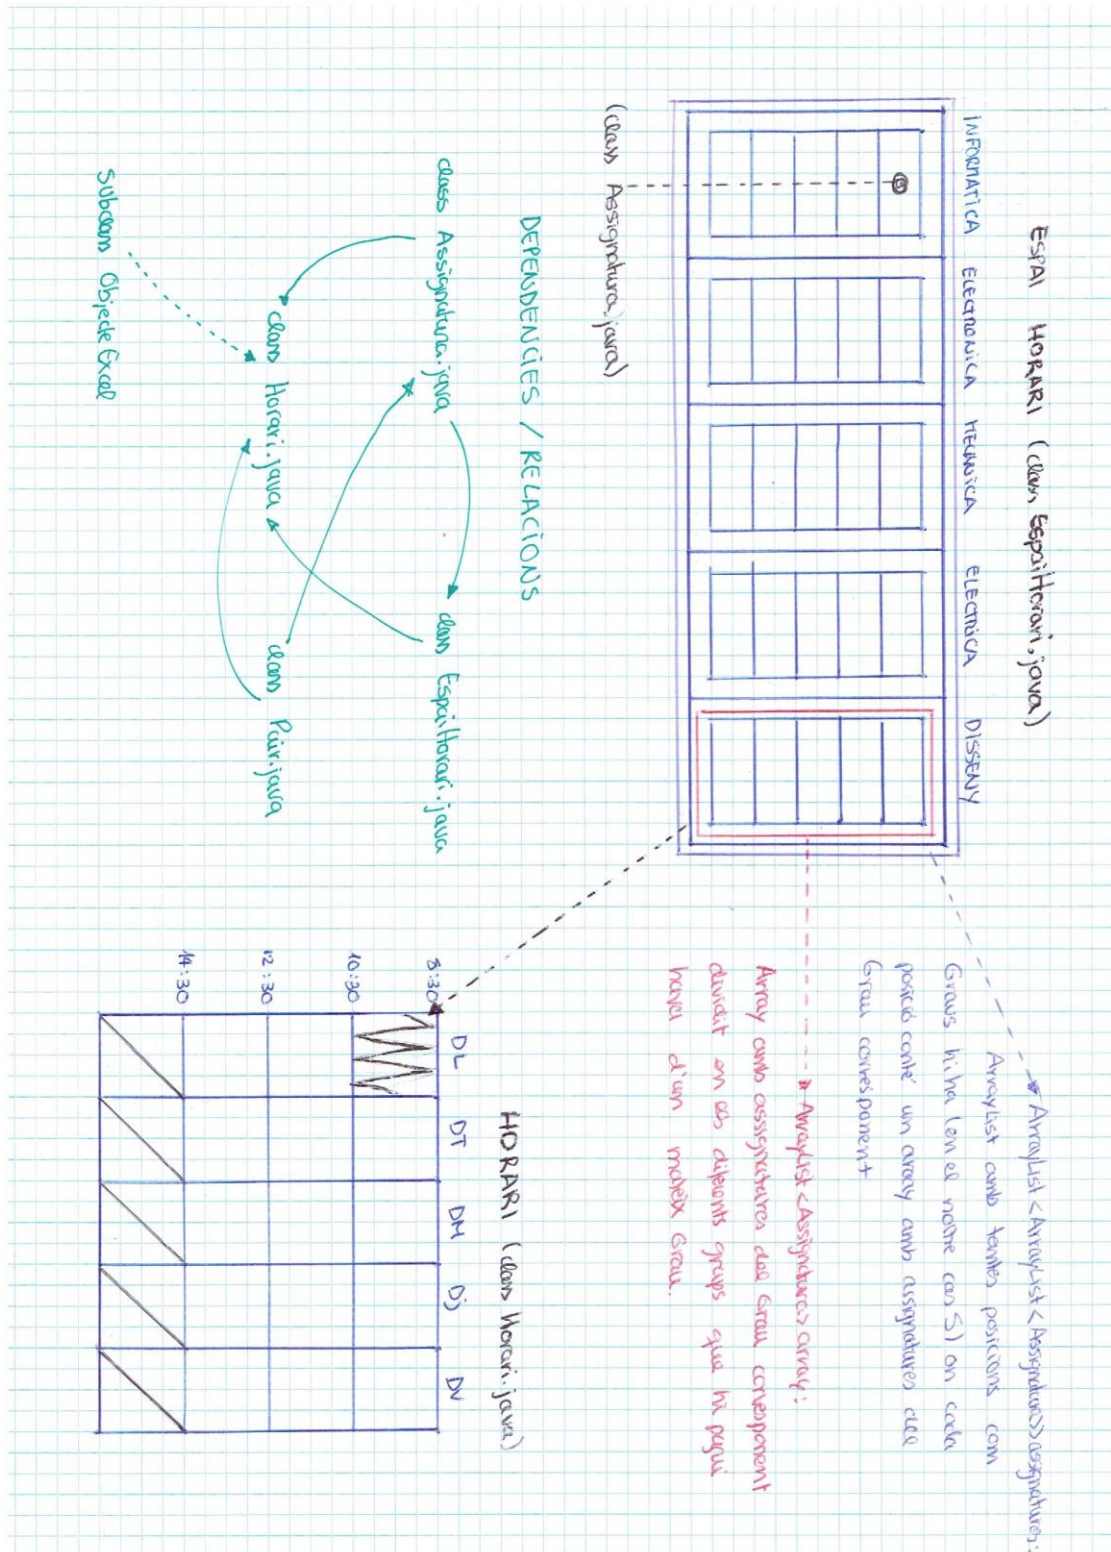 ESPAI HORARI (class EspaiHorari.java)
INFORMATICA ELECTRONICA MECANICA ELECTRICA DISSENY
(class Assignatura.java)
ArrayList<ArrayList<Assignatura>> assignatures:
ArrayList amb tantes posicions com
Graus hi ha (en el nostre cas 5) on cada
posició conté un array amb assignatures del
Grau corresponent
ArrayList<Assignatura> array:
Array amb assignatures del Grau corresponent
dividit en els diferents grups que hi pugui
haver d'un mateix Grau.
DEPENDENCIES / RELACIONS
class Assignatura.java
class EspaiHorari.java
class Horari.java
class Pair.java
Subclass Objecte Excel
HORARI (class Horari.java)
DL DT DM Dj DV
8:30
10:30
12:30
14:30